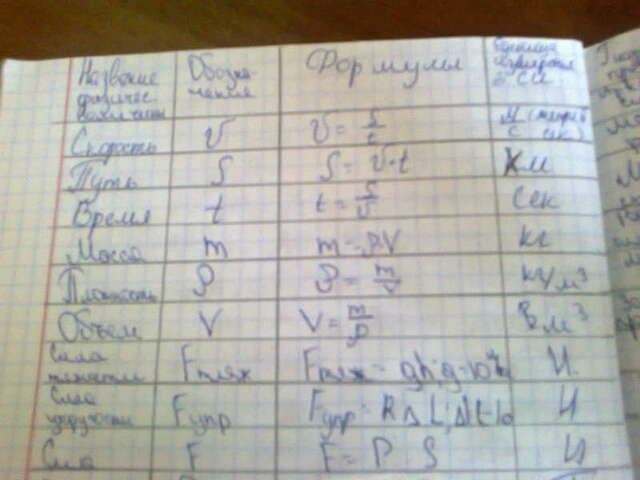 Название физичес. величины Обозначения Формулы Единица измерения в СИ
Скорость V V = S/t м (метр) с сек)
Путь S S = V·t Км
Время t t = S/V сек
Масса m m = ρV кг
Плотность ρ ρ = m/V кг/м³
Объем V V = m/ρ В м³
Сила тяжести Fтяж Fтяж =
Сила упругости Fупр Fупр = И
Сила F F = P S И